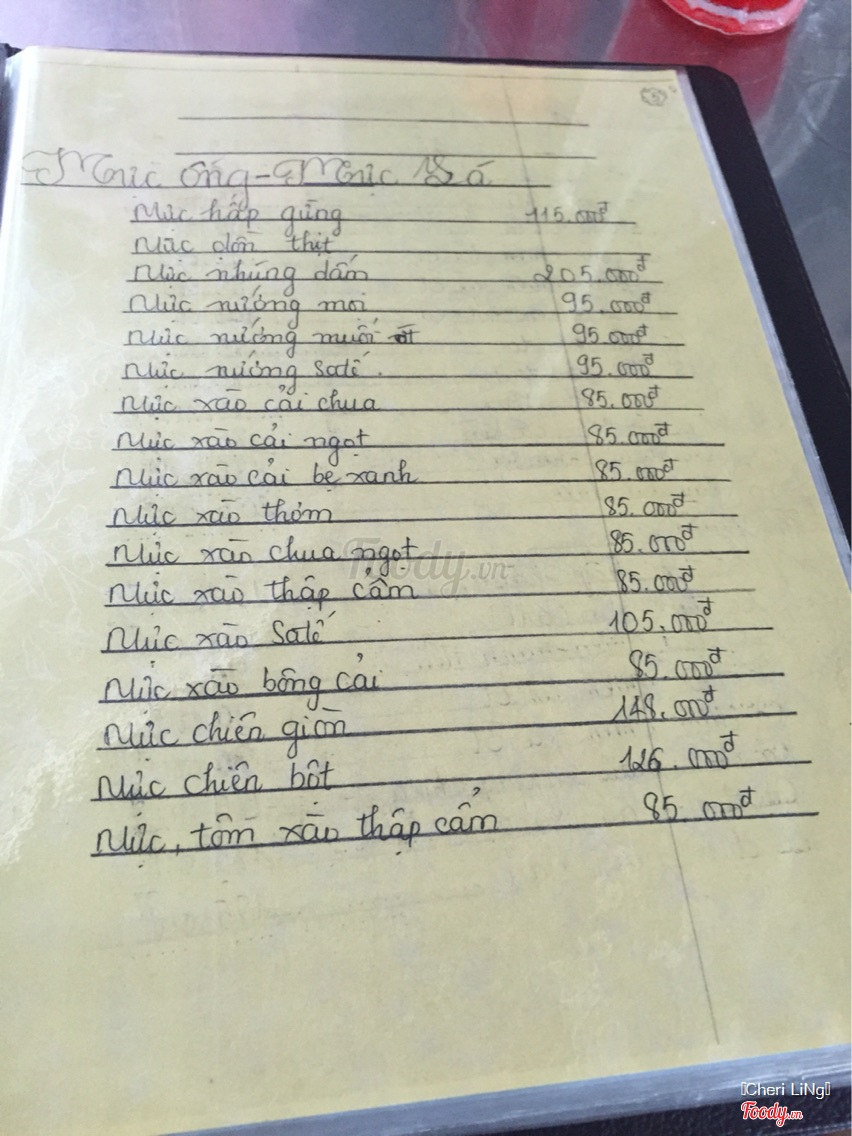 5
Mực ống - Mực Lá
Mực hấp gừng 115.000đ
Mực dồn thịt
Mực nhúng dấm 205.000đ
Mực nướng mọi 95.000đ
Mực nướng muối ớt 95.000đ
Mực nướng Satế. 95.000đ
Mực xào cải chua 85.000đ
Mực xào cải ngọt 85.000đ
Mực xào cải bẹ xanh 85.000đ
Mực xào thơm 85.000đ
Mực xào chua ngọt 85.000đ
Foody.vn
Mực xào thập cẩm 85.000đ
Mực xào Satế 105.000đ
Mực xào bông cải 85.000đ
Mực chiên giòn 148.000đ
Mực chiên bột 126.000đ
Mực, tôm xào thập cẩm 85.000đ
Cheri LiNg
Foody.vn